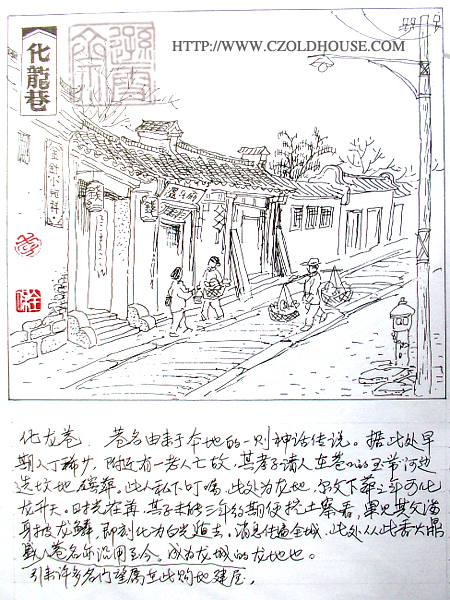 化龍巷
HTTP://WWW.CZOLDHOUSE.COM
化龙巷. 巷名由来于本地的一则神话传说。据此处早
期人丁稀少,附近有一老人亡故,其孝子请人在巷口的玉带河边
选坟地殡葬。此人私下叮嘱,此处为龙地,尔父下葬三年可化
龙升天。时光荏苒,其子未三年约期便挖土察看,果见其父满
身披龙鳞,即刻化为白光遁去,消息传遍全城,此处从此香火鼎
盛,巷名亦沿用至今。成为龙城的龙地也。
引来许多名门望属在此购地建屋。